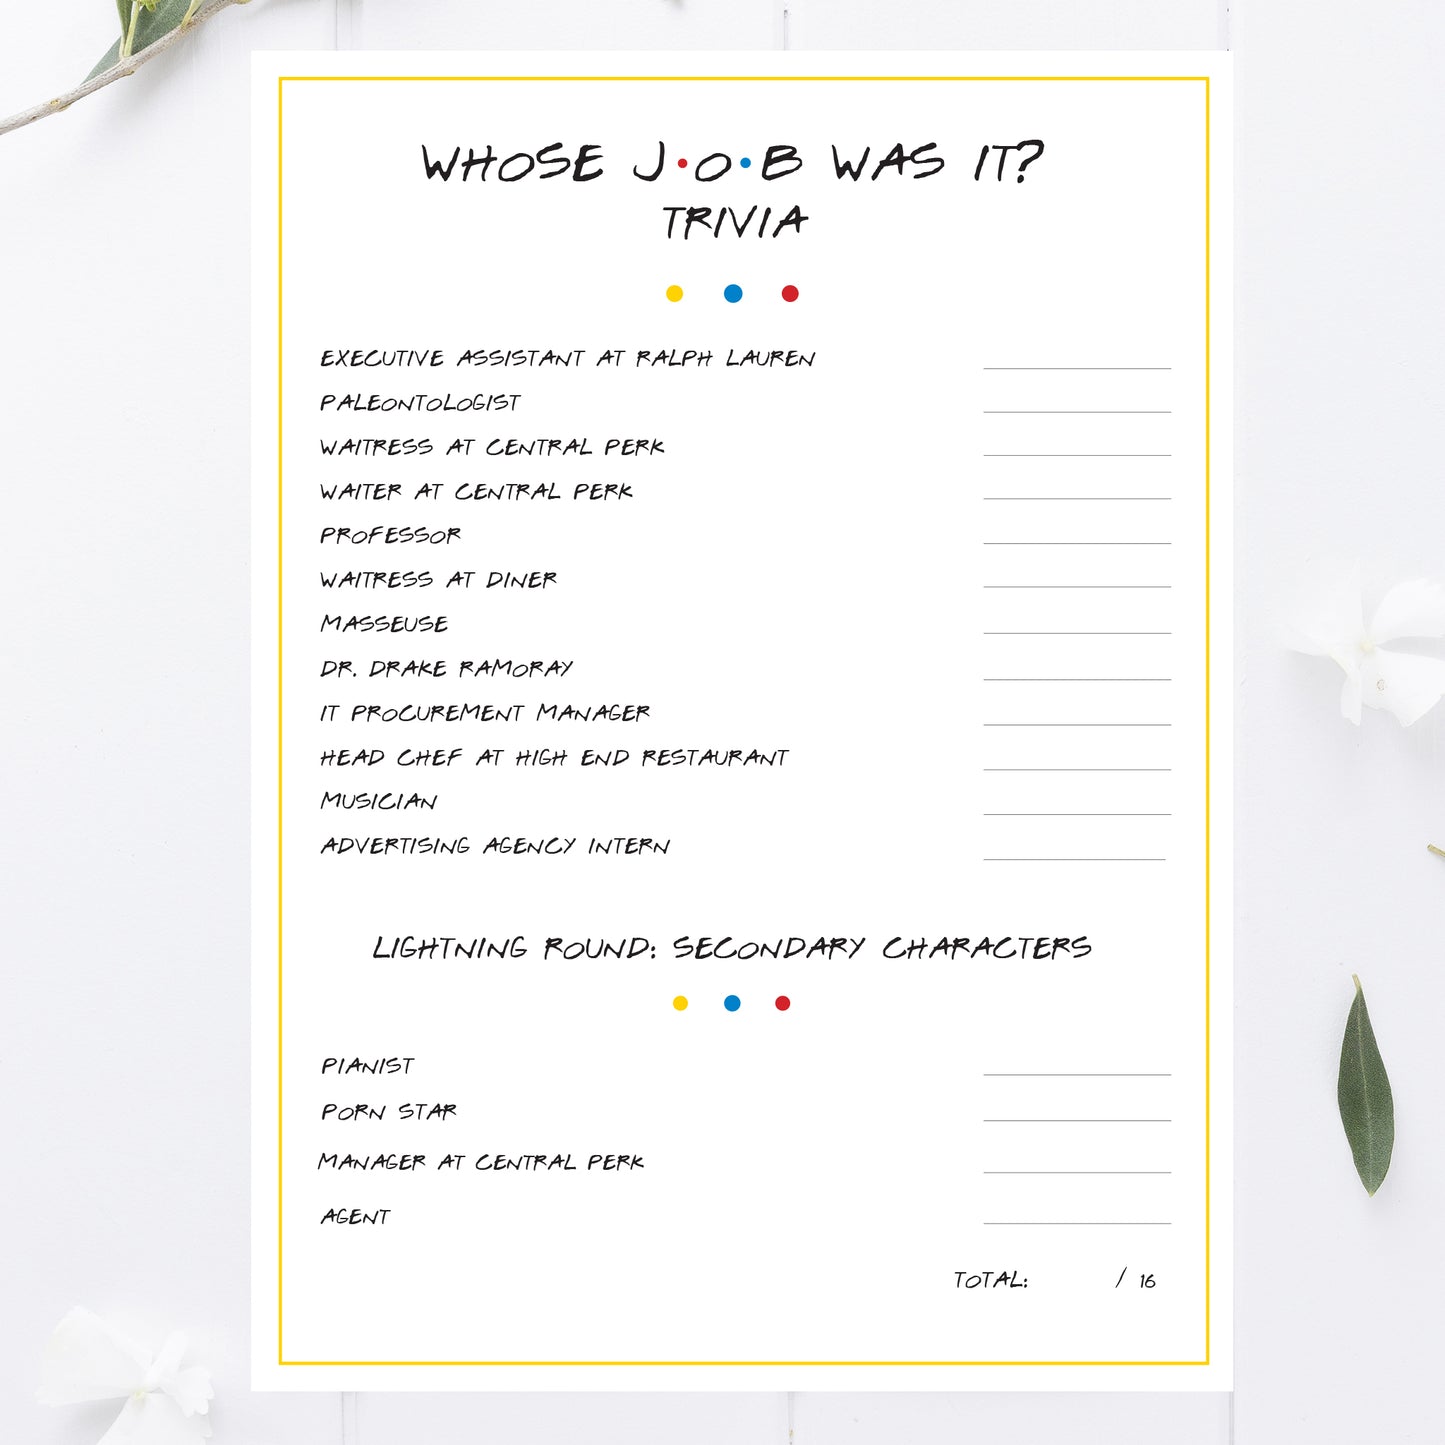 WHOSE J•O•B WAS IT?
TRIVIA
EXECUTIVE ASSISTANT AT RALPH LAUREN
PALEONTOLOGIST
WAITRESS AT CENTRAL PERK
WAITER AT CENTRAL PERK
PROFESSOR
WAITRESS AT DINER
MASSEUSE
DR. DRAKE RAMORAY
IT PROCUREMENT MANAGER
HEAD CHEF AT HIGH END RESTAURANT
MUSICIAN
ADVERTISING AGENCY INTERN
LIGHTNING ROUND: SECONDARY CHARACTERS
PIANIST
PORN STAR
MANAGER AT CENTRAL PERK
AGENT
TOTAL: / 16